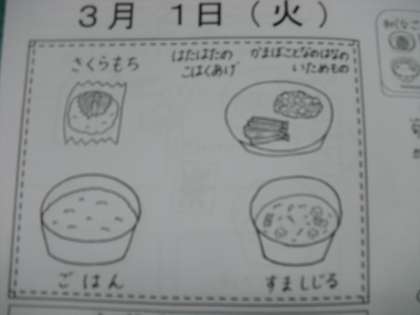 3月 1日(火)
さくらもち
はたはたの
こはくあげ
かまぼことなのはなの
いためもの
ごはん
すましじる